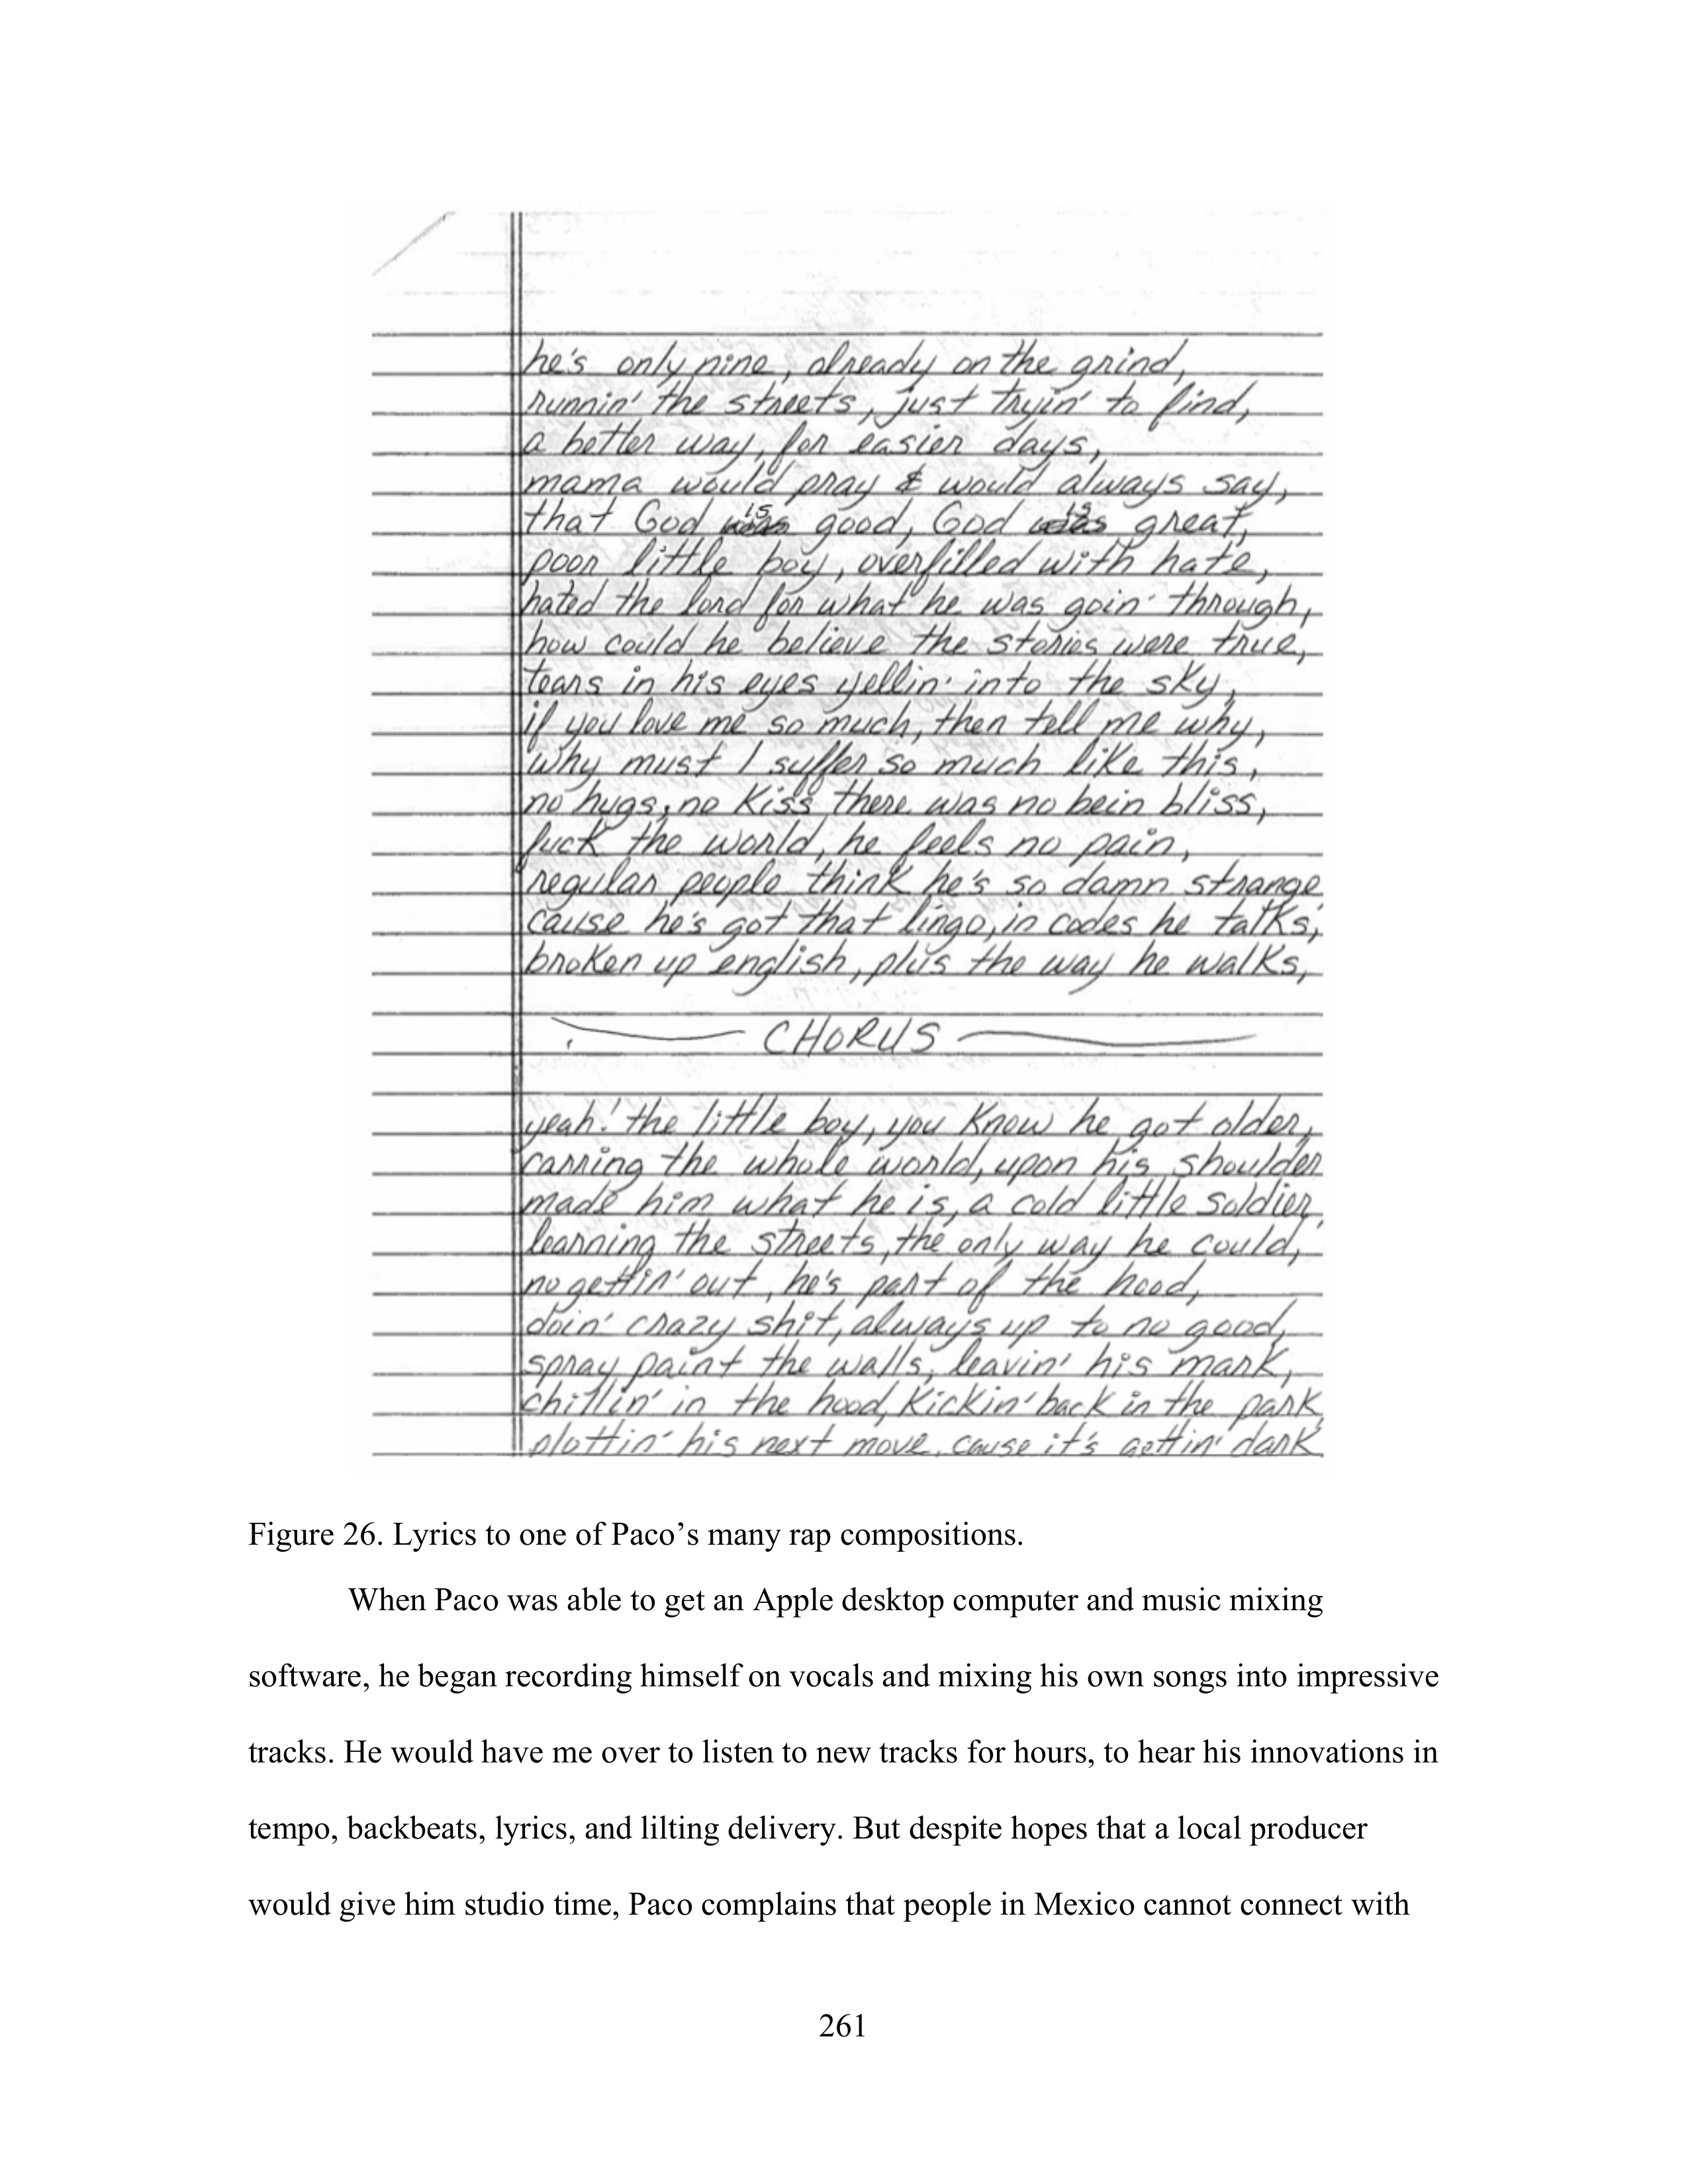 he's only nine, already on the grind,
runnin' the streets, just tryin' to find,
a better way, for easier days,
mama would pray & would always say,
that God is good, God is great,
poor little boy, overfilled with hate,
hated the lord for what he was goin' through,
how could he believe the stories were true,
tears in his eyes yellin' into the sky,
if you love me so much, then tell me why,
why must I suffer so much like this,
no hugs, no kiss, there was no bein bliss,
fuck the world, he feels no pain,
regular people think he's so damn strange
cause he's got that lingo, in codes he talks,
broken up english, plus the way he walks,
CHORUS
yeah! the little boy, you know he got older,
carring the whole world, upon his shoulder
made him what he is, a cold little soldier,
learning the streets, the only way he could,
no gettin' out, he's part of the hood,
doin' crazy shit, always up to no good,
spray paint the walls, leavin' his mark,
chillin' in the hood, kickin' back in the park,
plottin' his next move, cause it's gettin' dark
Figure 26. Lyrics to one of Paco’s many rap compositions.
When Paco was able to get an Apple desktop computer and music mixing
software, he began recording himself on vocals and mixing his own songs into impressive
tracks. He would have me over to listen to new tracks for hours, to hear his innovations in
tempo, backbeats, lyrics, and lilting delivery. But despite hopes that a local producer
would give him studio time, Paco complains that people in Mexico cannot connect with
261